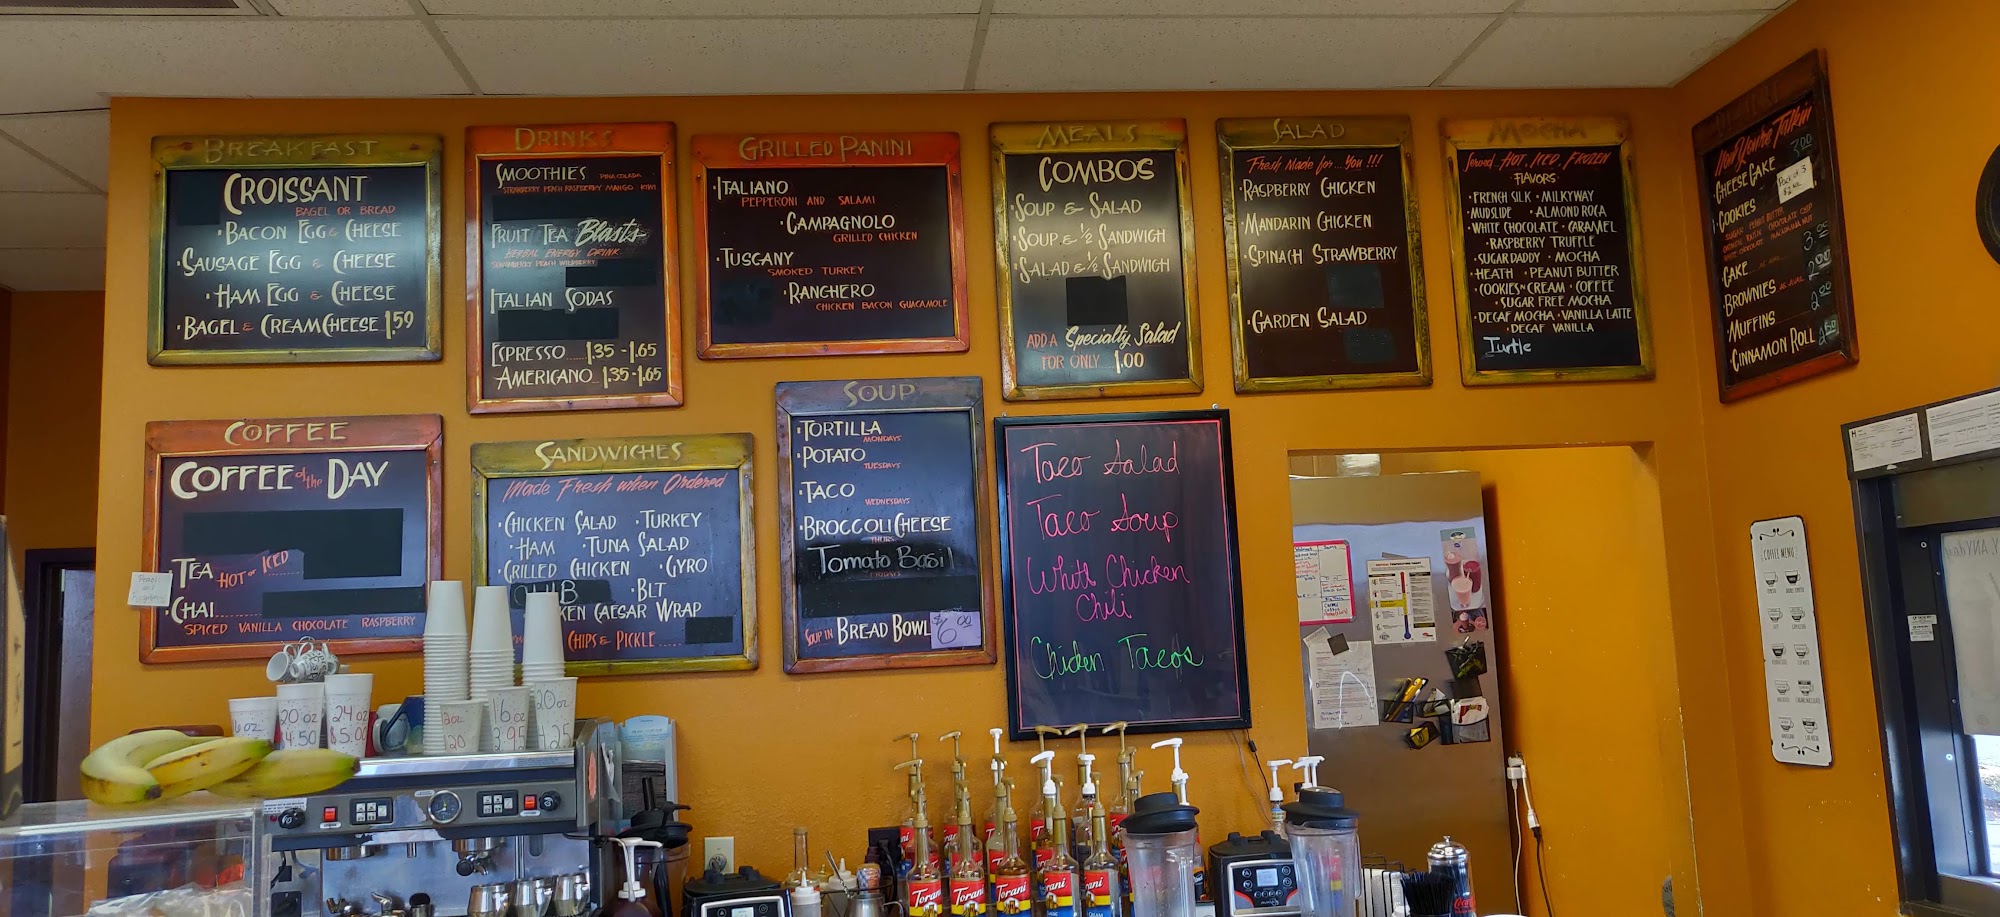 BREAKFAST
CROISSANT
BAGEL OR BREAD
· BACON EGG & CHEESE
· SAUSAGE EGG & CHEESE
· HAM EGG & CHEESE
· BAGEL & CREAM CHEESE 1.59
DRINKS
SMOOTHIES PINA COLADA
STRAWBERRY PEACH RASPBERRY MANGO KIWI
FRUIT TEA Blasts
HERBAL ENERGY DRINK
STRAWBERRY PEACH WILDBERRY
ITALIAN SODAS
ESPRESSO 1.35 - 1.65
AMERICANO 1.35 - 1.65
GRILLED PANINI
· ITALIANO
PEPPERONI AND SALAMI
· CAMPAGNOLO
GRILLED CHICKEN
· TUSCANY
SMOKED TURKEY
· RANCHERO
CHICKEN BACON GUACAMOLE
MEALS
COMBO'S
· SOUP & SALAD
· SOUP & ½ SANDWICH
· SALAD & ½ SANDWICH
ADD A Specialty Salad
FOR ONLY 1.00
SALAD
Fresh Made for... You !!!
· RASPBERRY CHICKEN
· MANDARIN CHICKEN
· SPINACH STRAWBERRY
· GARDEN SALAD
MOCHA
Served... HOT, ICED, FROZEN
FLAVORS
· FRENCH SILK · MILKYWAY
· MUDSLIDE · ALMOND ROCA
· WHITE CHOCOLATE · CARAMEL
· RASPBERRY TRUFFLE
· SUGAR DADDY · MOCHA
· HEATH · PEANUT BUTTER
· COOKIES N CREAM · COFFEE
· SUGAR FREE MOCHA
· DECAF MOCHA · VANILLA LATTE
· DECAF VANILLA
Turtle
Now You're Talkin'
· CHEESE CAKE 3.00
· COOKIES
· CAKE 3.00
· BROWNIES 2.00
· MUFFINS 2.00
· CINNAMON ROLL 2.50
COFFEE
COFFEE of the DAY
TEA HOT or ICED
· CHAI
SPICED VANILLA CHOCOLATE RASPBERRY
SANDWICHES
Made Fresh when Ordered
· CHICKEN SALAD · TURKEY
· HAM · TUNA SALAD
· GRILLED CHICKEN · GYRO
· BLT
KEN CAESAR WRAP
CHIPS & PICKLE
SOUP
· TORTILLA
MONDAYS
· POTATO
TUESDAYS
· TACO
WEDNESDAYS
· BROCCOLI CHEESE
THURS
Tomato Basil
FRIDAYS
SOUP IN BREAD BOWL $6.00
Taco Salad
Taco Soup
White Chicken
Chili
Chicken Tacos
COFFEE MENU
20 oz
$4.50
24 oz
$5.00
16 oz
3.95
20 oz
4.25
Torani
Torani
Torani
Torani
Torani